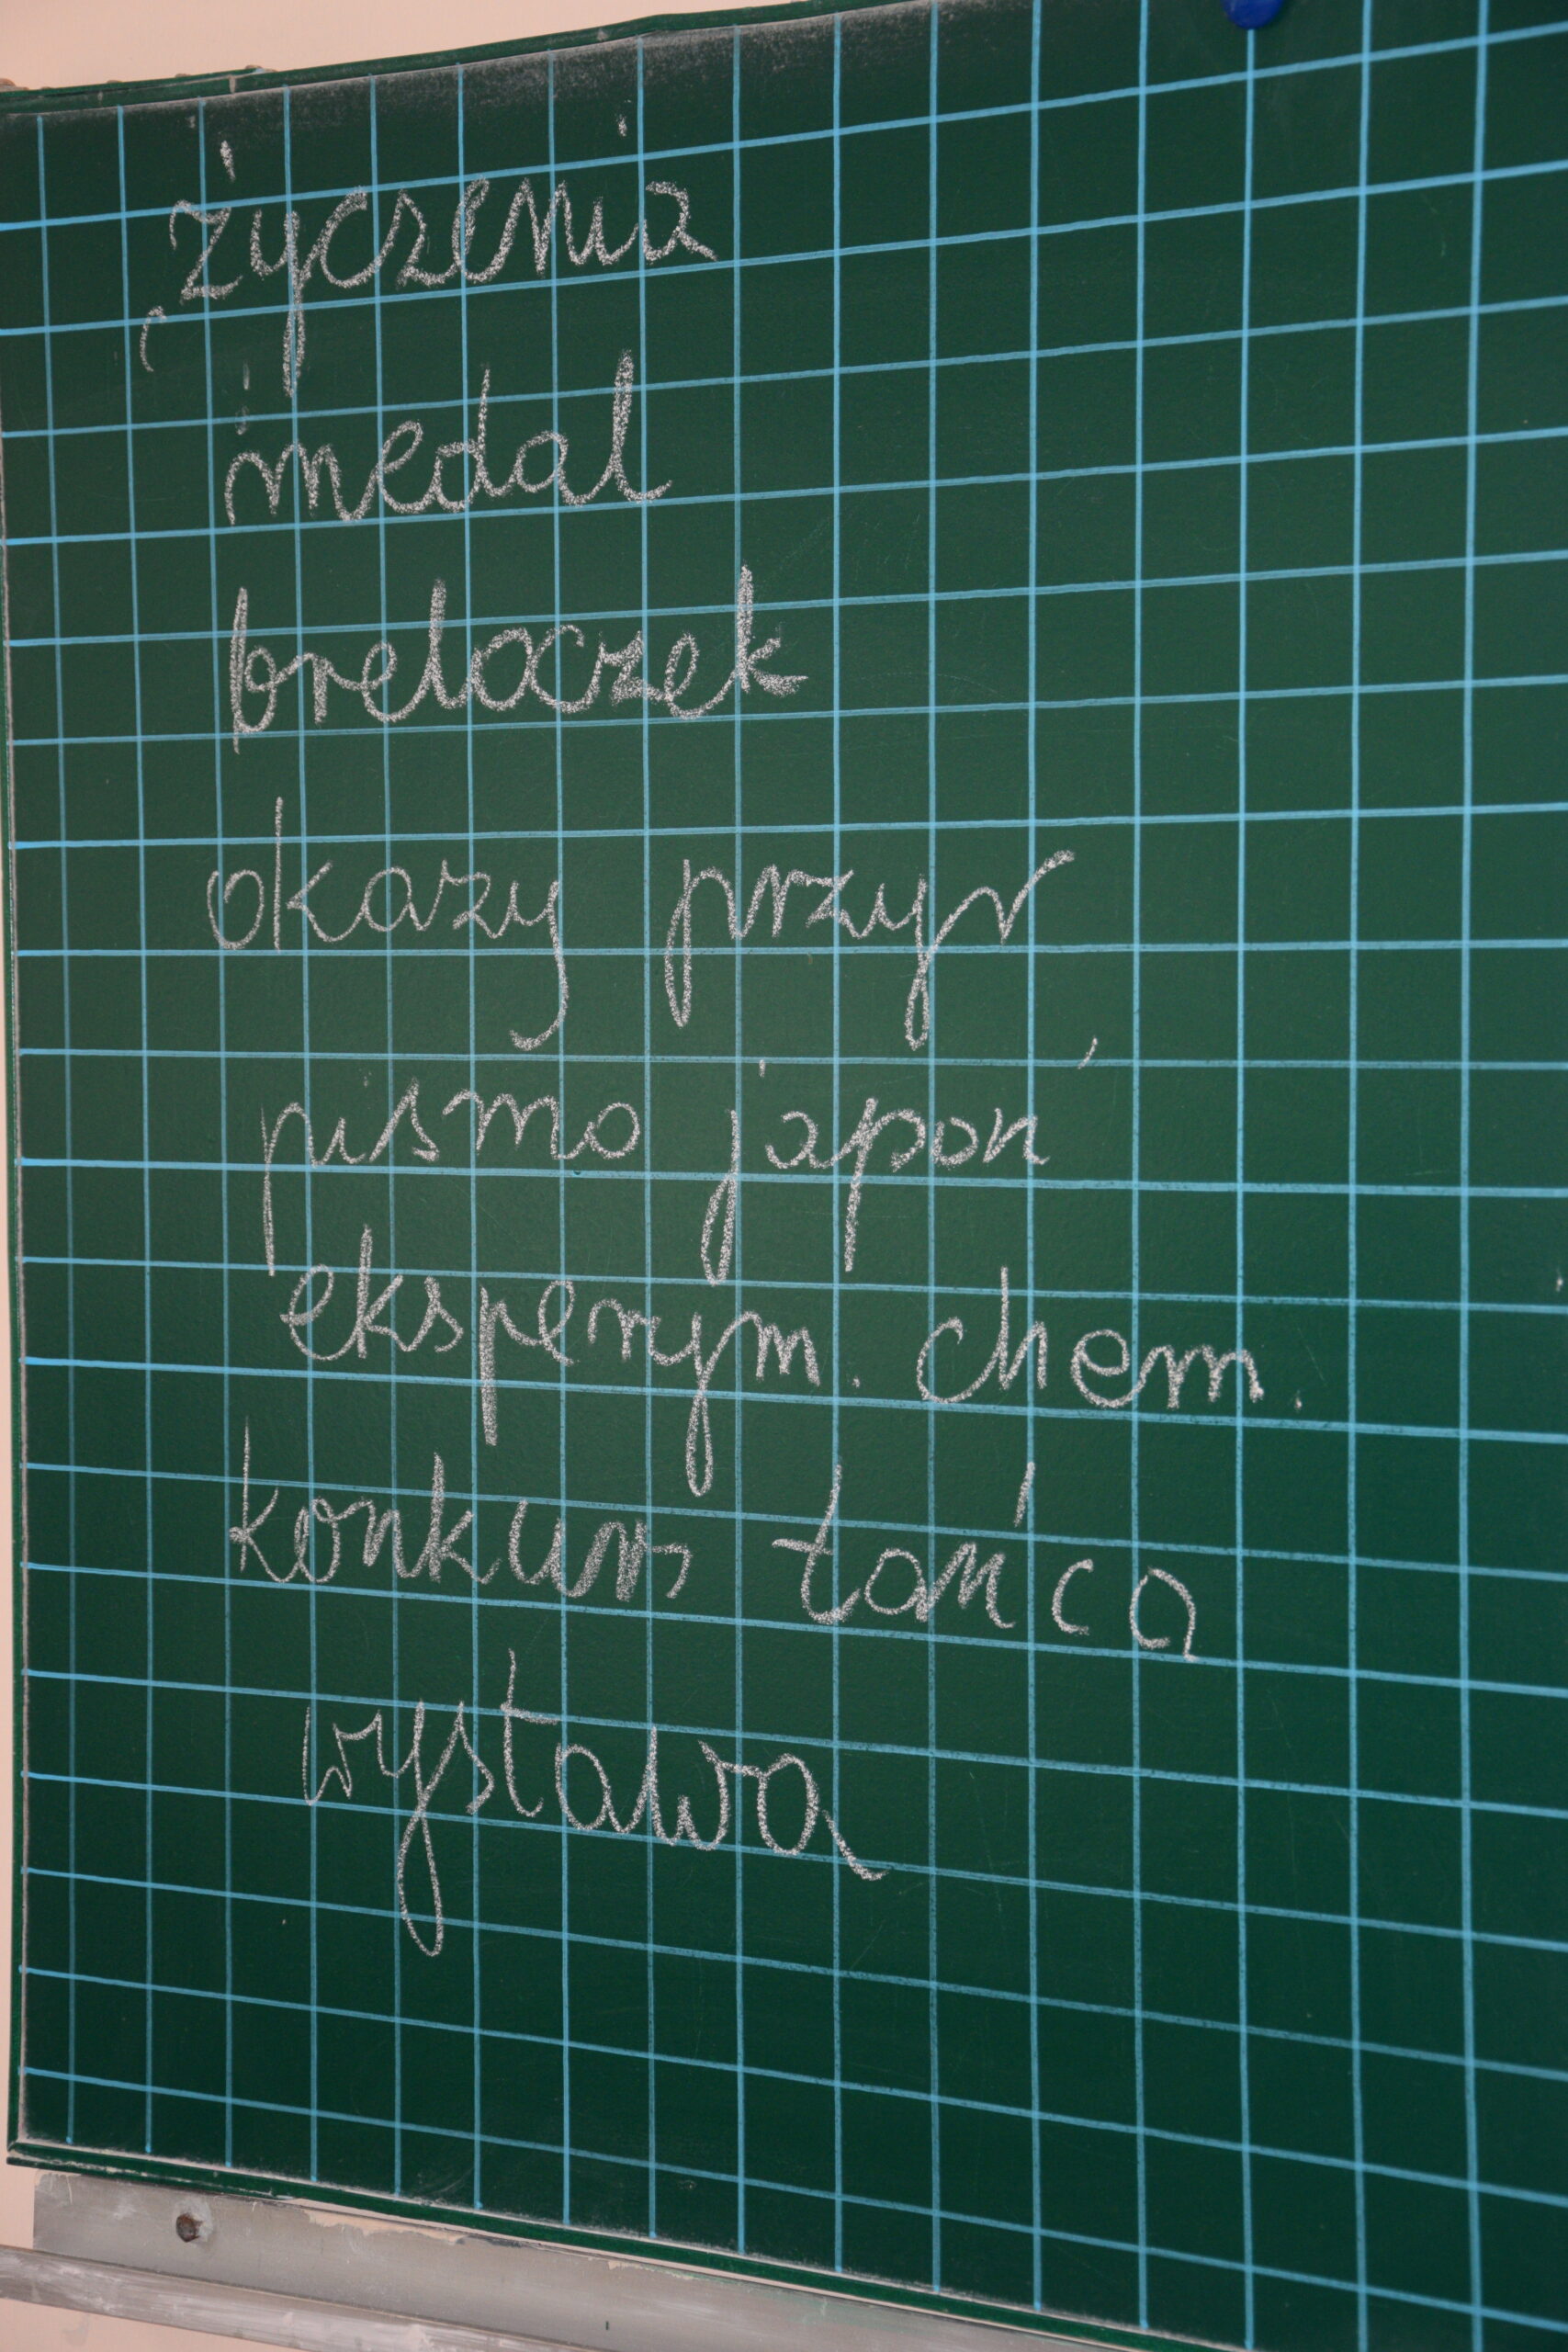 życzenia
medal
breloczek
okazy przyr
pismo japoń
eksperym. chem.
konkurs tańca
wystawa